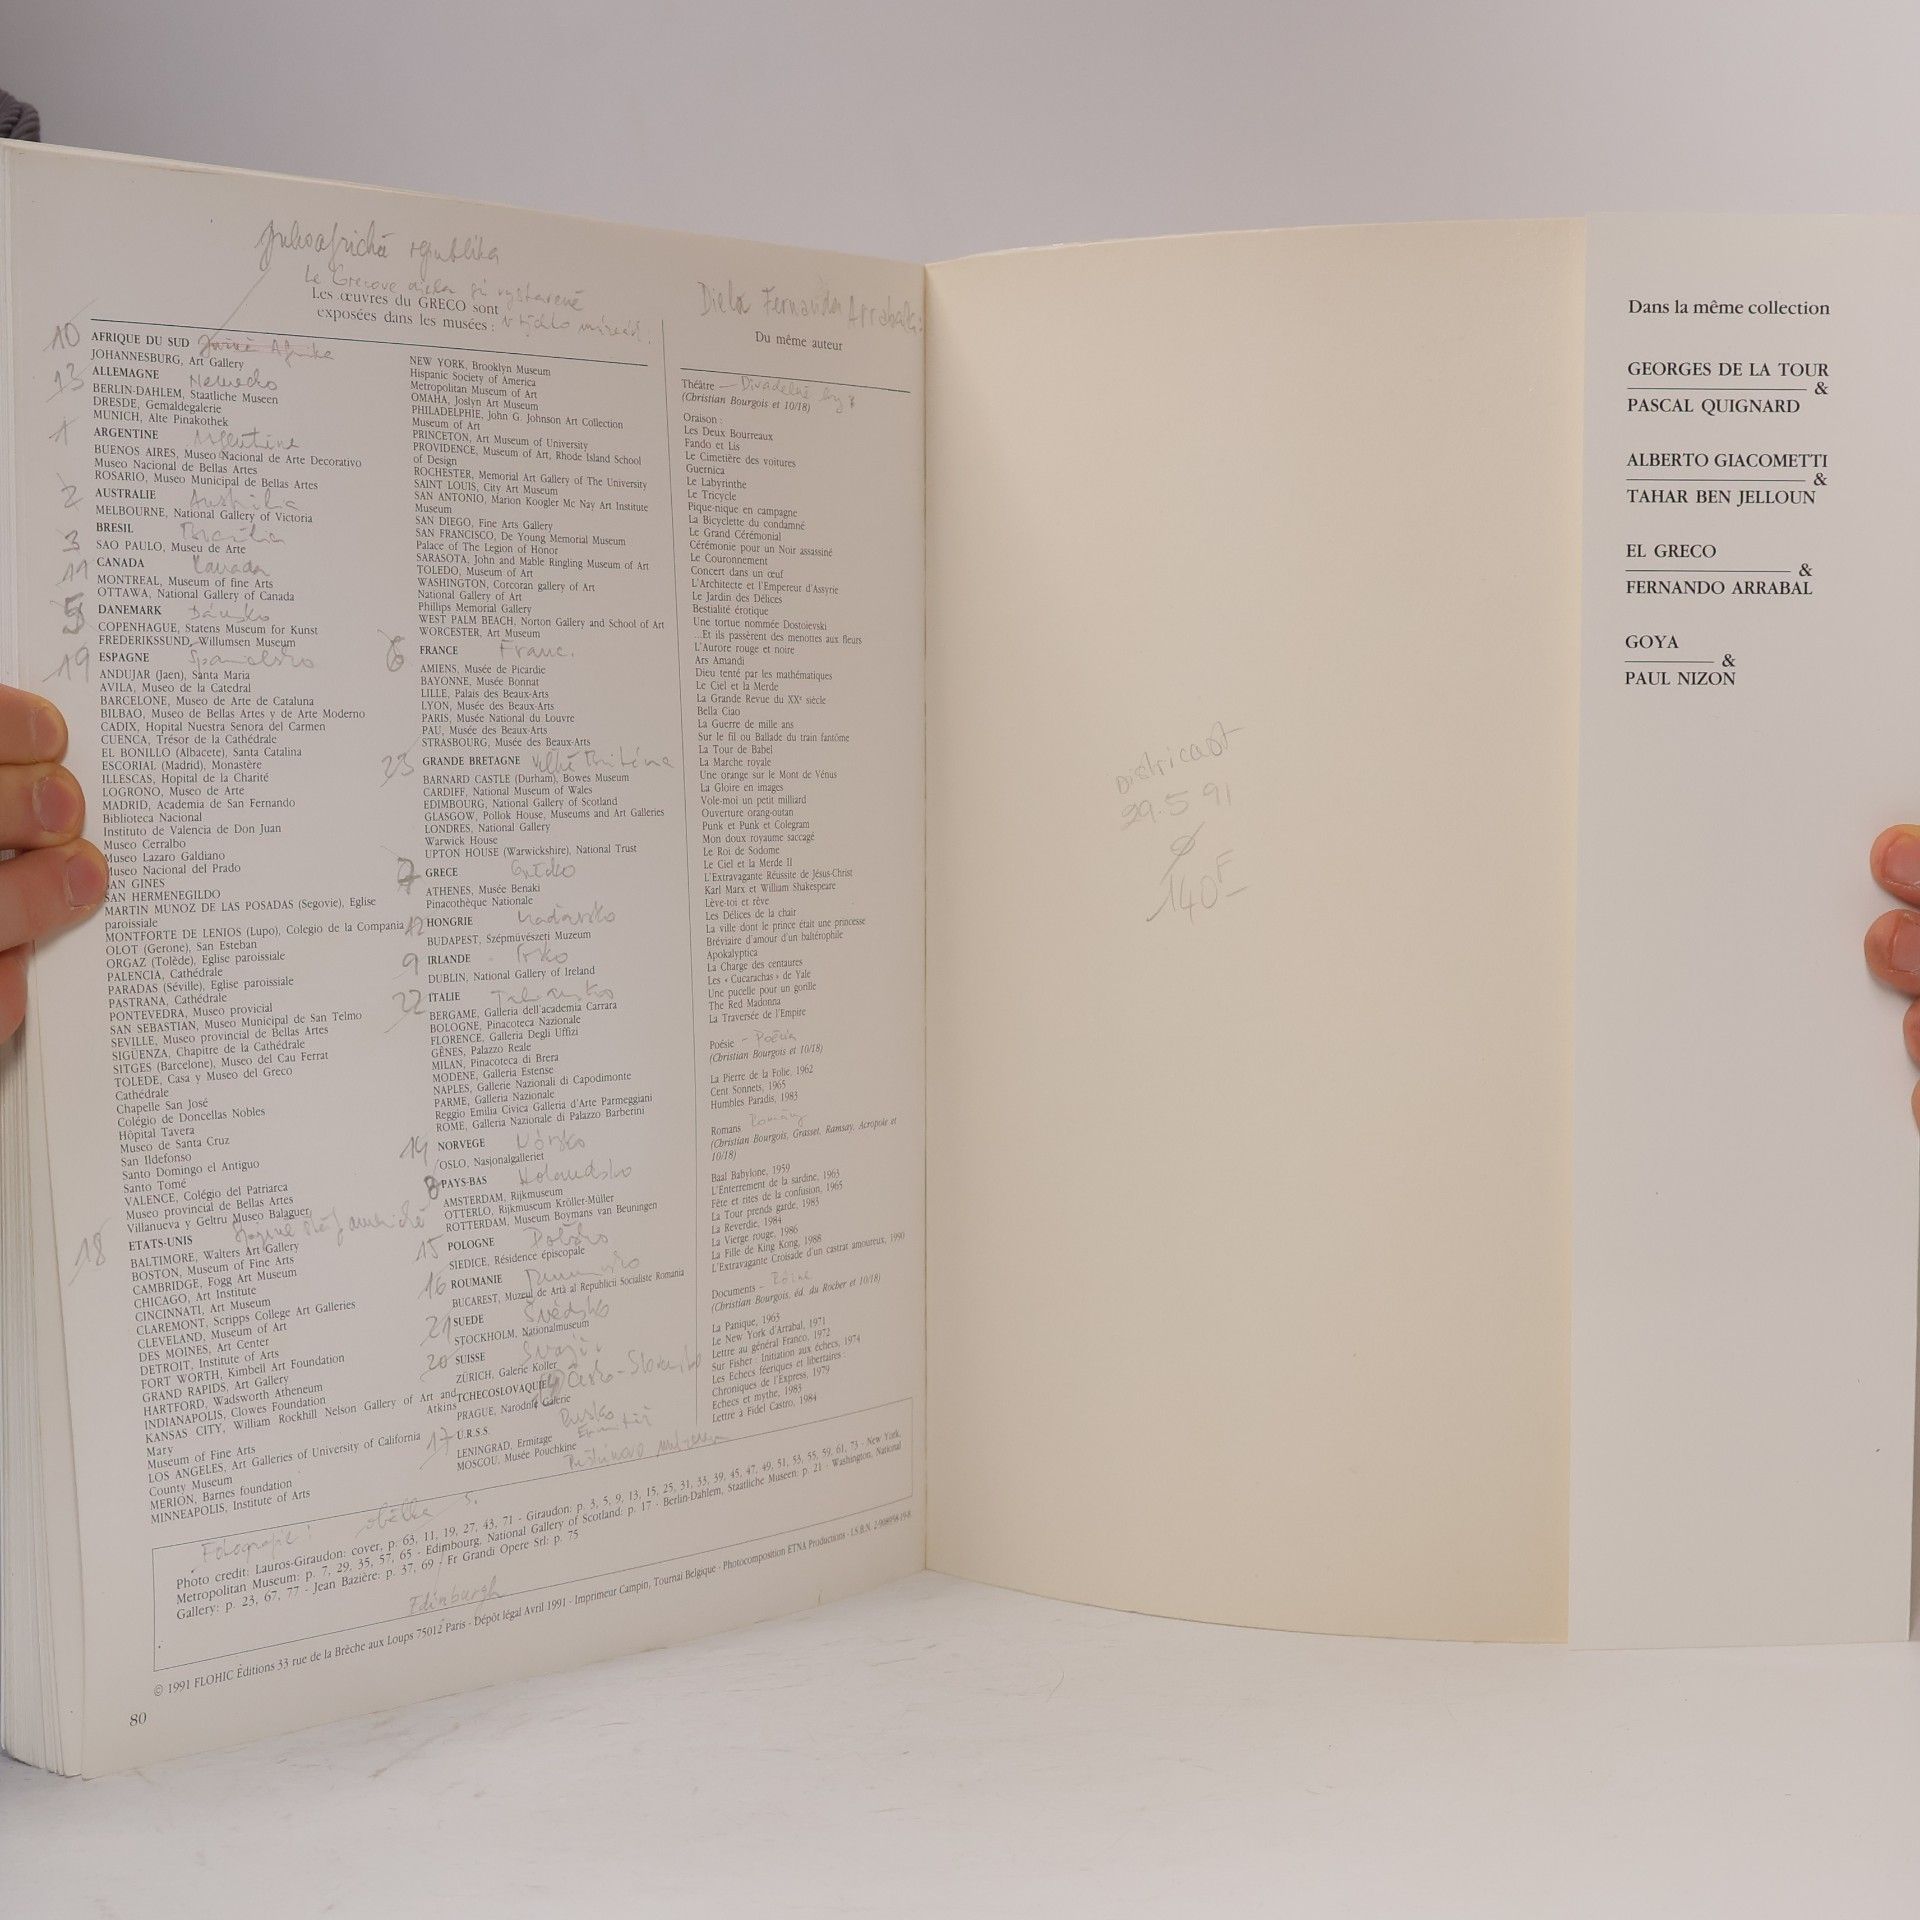 Juhoafrická republika
Le Grecove diela sú vystavené
Les œuvres du GRECO sont
exposées dans les musées : v týchto múzeách:
10 AFRIQUE DU SUD Južná Afrika
JOHANNESBURG, Art Gallery
13 ALLEMAGNE Nemecko
BERLIN-DAHLEM, Staatliche Museen
DRESDE, Gemaldegalerie
MUNICH, Alte Pinakothek
1 ARGENTINE Argentína
BUENOS AIRES, Museo Nacional de Arte Decorativo
Museo Nacional de Bellas Artes
ROSARIO, Museo Municipal de Bellas Artes
2 AUSTRALIE Austrália
MELBOURNE, National Gallery of Victoria
3 BRESIL Brazília
SAO PAULO, Museu de Arte
11 CANADA Kanada
MONTREAL, Museum of fine Arts
OTTAWA, National Gallery of Canada
5 DANEMARK Dánsko
COPENHAGUE, Statens Museum for Kunst
FREDERIKSSUND, Willumsen Museum
19 ESPAGNE Španielsko
ANDUJAR (Jaen), Santa Maria
AVILA, Museo de la Catedral
BARCELONE, Museo de Arte de Cataluna
BILBAO, Museo de Bellas Artes y de Arte Moderno
CADIX, Hopital Nuestra Senora del Carmen
CUENCA, Trésor de la Cathédrale
EL BONILLO (Albacete), Santa Catalina
ESCORIAL (Madrid), Monastère
ILLESCAS, Hopital de la Charité
LOGRONO, Museo de Arte
MADRID, Academia de San Fernando
Biblioteca Nacional
Instituto de Valencia de Don Juan
Museo Cerralbo
Museo Lazaro Galdiano
Museo Nacional del Prado
SAN GINES
SAN HERMENEGILDO
MARTIN MUNOZ DE LAS POSADAS (Segovie), Eglise
paroissiale
MONTFORTE DE LENIOS (Lupo), Colegio de la Compania
OLOT (Gerone), San Esteban
ORGAZ (Tolède), Eglise paroissiale
PALENCIA, Cathédrale
PARADAS (Séville), Eglise paroissiale
PASTRANA, Cathédrale
PONTEVEDRA, Museo provicial
SAN SEBASTIAN, Museo Municipal de San Telmo
SEVILLE, Museo provincial de Bellas Artes
SIGÜENZA, Chapitre de la Cathédrale
SITGES (Barcelone), Museo del Cau Ferrat
TOLEDE, Casa y Museo del Greco
Cathédrale
Chapelle San José
Colégio de Doncellas Nobles
Hôpital Tavera
Museo de Santa Cruz
San Ildefonso
Santo Domingo el Antiguo
Santo Tomé
VALENCE, Colégio del Patriarca
Museo provincial de Bellas Artes
Villanueva y Geltru Museo Balaguer
18 ETATS-UNIS Spojené štáty americké
BALTIMORE, Walters Art Gallery
BOSTON, Museum of Fine Arts
CAMBRIDGE, Fogg Art Museum
CHICAGO, Art Institute
CINCINNATI, Art Museum
CLAREMONT, Scripps College Art Galleries
CLEVELAND, Museum of Art
DES MOINES, Art Center
DETROIT, Institute of Arts
FORT WORTH, Kimbell Art Foundation
GRAND RAPIDS, Art Gallery
HARTFORD, Wadsworth Atheneum
INDIANAPOLIS, Clowes Foundation
KANSAS CITY, William Rockhill Nelson Gallery of Art and
Mary Atkins
Museum of Fine Arts
LOS ANGELES, Art Galleries of University of California
County Museum
MERION, Barnes foundation
MINNEAPOLIS, Institute of Arts
NEW YORK, Brooklyn Museum
Hispanic Society of America
Metropolitan Museum of Art
OMAHA, Joslyn Art Museum
PHILADELPHIE, John G. Johnson Art Collection
Museum of Art
PRINCETON, Art Museum of University
PROVIDENCE, Museum of Art, Rhode Island School
of Design
ROCHESTER, Memorial Art Gallery of The University
SAINT LOUIS, City Art Museum
SAN ANTONIO, Marion Koogler Mc Nay Art Institute
Museum
SAN DIEGO, Fine Arts Gallery
SAN FRANCISCO, De Young Memorial Museum
Palace of The Legion of Honor
SARASOTA, John and Mable Ringling Museum of Art
TOLEDO, Museum of Art
WASHINGTON, Corcoran gallery of Art
National Gallery of Art
Phillips Memorial Gallery
WEST PALM BEACH, Norton Gallery and School of Art
WORCESTER, Art Museum
6 FRANCE Franc.
AMIENS, Musée de Picardie
BAYONNE, Musée Bonnat
LILLE, Palais des Beaux-Arts
LYON, Musée des Beaux-Arts
PARIS, Musée National du Louvre
PAU, Musée des Beaux-Arts
STRASBOURG, Musée des Beaux-Arts
23 GRANDE BRETAGNE Veľká Británia
BARNARD CASTLE (Durham), Bowes Museum
CARDIFF, National Museum of Wales
EDIMBOURG, National Gallery of Scotland
GLASGOW, Pollok House, Museums and Art Galleries
LONDRES, National Gallery
Warwick House
UPTON HOUSE (Warwickshire), National Trust
7 GRECE Grécko
ATHENES, Musée Benaki
Pinacothèque Nationale
12 HONGRIE Maďarsko
BUDAPEST, Szépmüvészeti Muzeum
9 IRLANDE Írsko
DUBLIN, National Gallery of Ireland
22 ITALIE Taliansko
BERGAME, Galleria dell'academia Carrara
BOLOGNE, Pinacoteca Nazionale
FLORENCE, Galleria Degli Uffizi
GÊNES, Palazzo Reale
MILAN, Pinacoteca di Brera
MODENE, Galleria Estense
NAPLES, Gallerie Nazionali di Capodimonte
PARME, Galleria Nazionale
Reggio Emilia Civica Galleria d'Arte Parmeggiani
ROME, Galleria Nazionale di Palazzo Barberini
14 NORVEGE Nórsko
OSLO, Nasjonalgalleriet
8 PAYS-BAS Holandsko
AMSTERDAM, Rijkmuseum
OTTERLO, Rijkmuseum Kröller-Müller
ROTTERDAM, Museum Boymans van Beuningen
15 POLOGNE Poľsko
SIEDICE, Résidence épiscopale
16 ROUMANIE Rumunsko
BUCAREST, Muzeul de Artà al Republicii Socialiste Romania
21 SUEDE Švédsko
STOCKHOLM, Nationalmuseum
20 SUISSE Svajč.
ZÜRICH, Galerie Koller
TCHECOSLOVAQUIE Česko-Slovensko
PRAGUE, Narodni Galerie
17 U.R.S.S. Rusko
LENINGRAD, Ermitage Ermitáž
MOSCOU, Musée Pouchkine Puškinovo múzeum
Diela Fernanda Arrabala:
Du même auteur
Théâtre — Divadelné hry
(Christian Bourgois et 10/18)
Oraison :
Les Deux Bourreaux
Fando et Lis
Le Cimetière des voitures
Guernica
Le Labyrinthe
Le Tricycle
Pique-nique en campagne
La Bicyclette du condamné
Le Grand Cérémonial
Cérémonie pour un Noir assassiné
Le Couronnement
Concert dans un œuf
L'Architecte et l'Empereur d'Assyrie
Le Jardin des Délices
Bestialité érotique
Une tortue nommée Dostoievski
...Et ils passèrent des menottes aux fleurs
L'Aurore rouge et noire
Ars Amandi
Dieu tenté par les mathématiques
Le Ciel et la Merde
La Grande Revue du XXe siècle
Bella Ciao
La Guerre de mille ans
Sur le fil ou Ballade du train fantôme
La Tour de Babel
La Marche royale
Une orange sur le Mont de Vénus
La Gloire en images
Vole-moi un petit milliard
Ouverture orang-outan
Punk et Punk et Colegram
Mon doux royaume saccagé
Le Roi de Sodome
Le Ciel et la Merde II
L'Extravagante Réussite de Jésus-Christ
Karl Marx et William Shakespeare
Lève-toi et rêve
Les Délices de la chair
La ville dont le prince était une princesse
Bréviaire d'amour d'un haltérophile
Apokalyptica
La Charge des centaures
Les « Cucarachas » de Yale
Une pucelle pour un gorille
The Red Madonna
La Traversée de l'Empire
Poésie – Poézia
(Christian Bourgois et 10/18)
La Pierre de la Folie, 1962
Cent Sonnets, 1965
Humbles Paradis, 1983
Romans Romány
(Christian Bourgois, Grasset, Ramsay, Acropole et
10/18)
Baal Babylone, 1959
L'Enterrement de la sardine, 1963
Fête et rites de la confusion, 1965
La Tour prends garde, 1983
La Reverdie, 1984
La Vierge rouge, 1986
La Fille de King Kong, 1988
L'Extravagante Croisade d'un castrat amoureux, 1990
Documents – Rôzne
(Christian Bourgois, éd. du Rocher et 10/18)
La Panique, 1963
Le New York d'Arrabal, 1971
Lettre au général Franco, 1972
Sur Fisher : Initiation aux échecs, 1974
Les Echecs féeriques et libertaires :
Chroniques de l'Express, 1979
Echecs et mythe, 1983
Lettre à Fidel Castro, 1984
Fotografie: obálka s.
Photo credit: Lauros-Giraudon: cover, p. 63, 11, 19, 27, 43, 71 - Giraudon: p. 3, 5, 9, 13, 15, 25, 31, 33, 39, 45, 47, 49, 51, 53, 55, 59, 61, 73 - New York,
Metropolitan Museum: p. 7, 29, 35, 57, 65 - Edimbourg, National Gallery of Scotland: p. 17 - Berlin-Dahlem, Staatliche Museen, p. 21 - Washington, National
Gallery: p. 23, 67, 77 - Jean Bazière: p. 37, 69 - Fr Grandi Opere Srl: p. 75
Edinburgh
© 1991 FLOHIC Éditions 33 rue de la Brêche aux Loups 75012 Paris - Dépôt légal Avril 1991 - Imprimeur Campin, Tournai Belgique - Photocomposition ETNA Productions - I.S.B.N. 2-908958-19-8
80
Districast
29.5 91
140F
Dans la même collection
GEORGES DE LA TOUR
&
PASCAL QUIGNARD
ALBERTO GIACOMETTI
&
TAHAR BEN JELLOUN
EL GRECO
&
FERNANDO ARRABAL
GOYA
&
PAUL NIZON